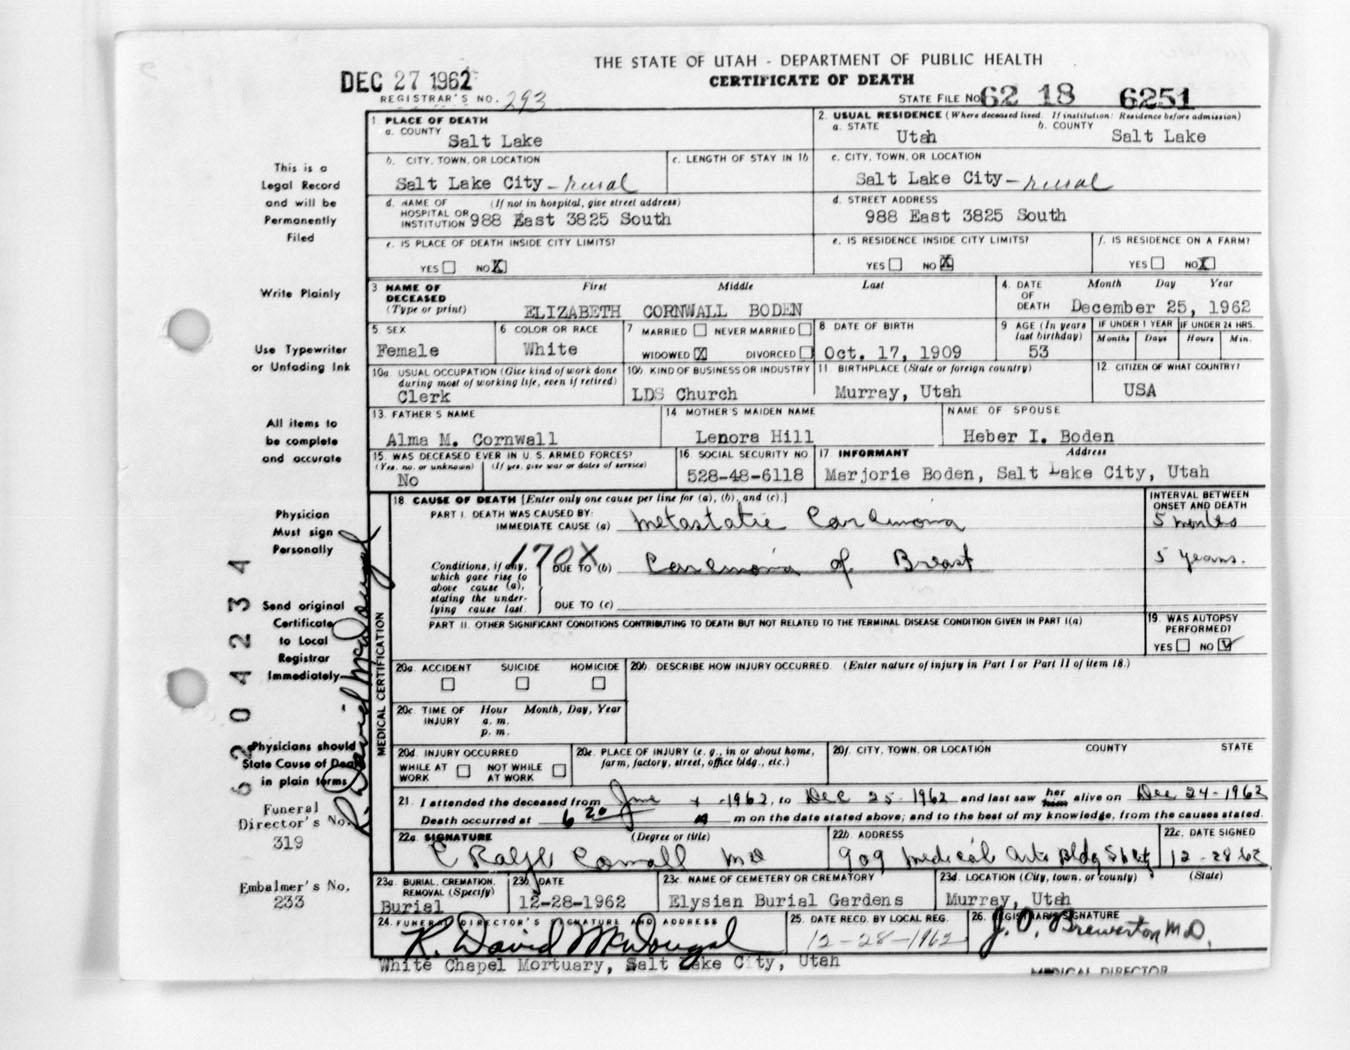 THE STATE OF UTAH - DEPARTMENT OF PUBLIC HEALTH
DEC 27 1962
CERTIFICATE OF DEATH
REGISTRAR'S NO. 293
STATE FILE NO. 62 18 6251
1. PLACE OF DEATH
a. COUNTY
Salt Lake
2. USUAL RESIDENCE (Where deceased lived. If institution: Residence before admission)
a. STATE Utah
b. COUNTY Salt Lake
b. CITY, TOWN, OR LOCATION
Salt Lake City - rural
c. LENGTH OF STAY IN 1b
c. CITY, TOWN, OR LOCATION
Salt Lake City - rural
d. NAME OF HOSPITAL OR INSTITUTION (If not in hospital, give street address)
988 East 3825 South
d. STREET ADDRESS
988 East 3825 South
e. IS PLACE OF DEATH INSIDE CITY LIMITS?
YES NO X
e. IS RESIDENCE INSIDE CITY LIMITS?
YES NO X
f. IS RESIDENCE ON A FARM?
YES NO X
3 NAME OF DECEASED (Type or print)
First Middle Last
ELIZABETH CORNWALL BODEN
4. DATE OF DEATH
Month Day Year
December 25, 1962
5. SEX
Female
6 COLOR OR RACE
White
7 MARRIED NEVER MARRIED
WIDOWED X DIVORCED
8 DATE OF BIRTH
Oct. 17, 1909
9 AGE (In years last birthday)
53
IF UNDER 1 YEAR
Months Days
IF UNDER 24 HRS.
Hours Min.
10a USUAL OCCUPATION (Give kind of work done during most of working life, even if retired)
Clerk
10b. KIND OF BUSINESS OR INDUSTRY
LDS Church
11 BIRTHPLACE (State or foreign country)
Murray, Utah
12 CITIZEN OF WHAT COUNTRY?
USA
13. FATHER'S NAME
Alma M. Cornwall
14 MOTHER'S MAIDEN NAME
Lenora Hill
NAME OF SPOUSE
Heber I. Boden
15. WAS DECEASED EVER IN U. S. ARMED FORCES?
(Yes, no, or unknown) (If yes, give war or dates of service)
No
16 SOCIAL SECURITY NO
528-48-6118
17 INFORMANT Address
Marjorie Boden, Salt Lake City, Utah
18 CAUSE OF DEATH [Enter only one cause per line for (a), (b), and (c).]
INTERVAL BETWEEN ONSET AND DEATH
PART I. DEATH WAS CAUSED BY:
IMMEDIATE CAUSE (a) Metastatic Carcinoma
5 months
170X
Conditions, if any, which gave rise to above cause (a), stating the underlying cause last.
DUE TO (b) Carcinoma of Breast
5 years.
DUE TO (c)
PART II. OTHER SIGNIFICANT CONDITIONS CONTRIBUTING TO DEATH BUT NOT RELATED TO THE TERMINAL DISEASE CONDITION GIVEN IN PART I(a)
19. WAS AUTOPSY PERFORMED?
YES NO
MEDICAL CERTIFICATION
20a. ACCIDENT SUICIDE HOMICIDE
20b. DESCRIBE HOW INJURY OCCURRED. (Enter nature of injury in Part I or Part II of item 18.)
20c. TIME OF INJURY Hour Month, Day, Year
a. m.
p. m.
20d. INJURY OCCURRED
WHILE AT WORK NOT WHILE AT WORK
20e. PLACE OF INJURY (e. g., in or about home, farm, factory, street, office bldg., etc.)
20f. CITY, TOWN, OR LOCATION COUNTY STATE
21. I attended the deceased from June -1962, to Dec 25-1962 and last saw her him alive on Dec 24-1962
Death occurred at 6 20 m on the date stated above; and to the best of my knowledge, from the causes stated.
22a. SIGNATURE (Degree or title)
C Ralph Cornwall MD
22b. ADDRESS
909 Medical Arts Bldg
22c. DATE SIGNED
12-28-62
23a. BURIAL, CREMATION, REMOVAL (Specify)
Burial
23b. DATE
12-28-1962
23c. NAME OF CEMETERY OR CREMATORY
Elysian Burial Gardens
23d. LOCATION (City, town, or county) (State)
Murray, Utah
24. FUNERAL DIRECTOR'S SIGNATURE AND ADDRESS
K. David McDougal
White Chapel Mortuary, Salt Lake City, Utah
25. DATE RECD. BY LOCAL REG.
12-28-1962
26. REGISTRAR'S SIGNATURE
J. O. Brewerton M.D.
MEDICAL DIRECTOR
This is a
Legal Record
and will be
Permanently
Filed
Write Plainly
Use Typewriter
or Unfading Ink
All items to
be complete
and accurate
Physician
Must sign
Personally
Send original
Certificate
to Local
Registrar
Immediately
Physicians should
State Cause of Death
in plain terms
Funeral
Director's No.
319
Embalmer's No.
233
62 04234
K. David McDougal